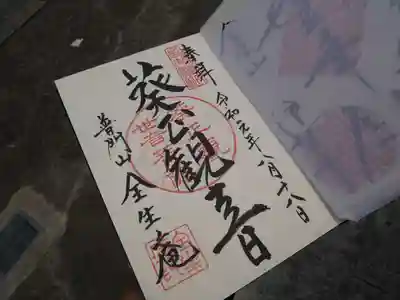 奉拝
令和元年八月十八日
葵公観音
普門山 全生庵